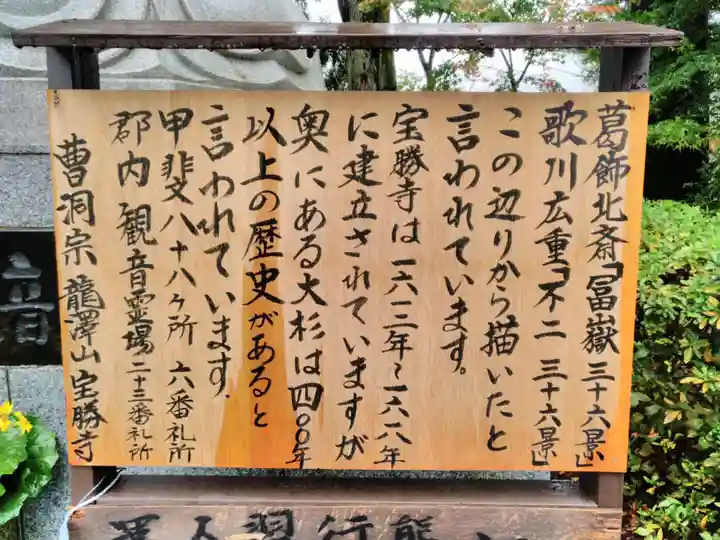 葛飾北斎「冨嶽 三十六景」
歌川広重「不二 三十六景」
この辺りから描いたと
言われています。
宝勝寺は一六一二年~一六一八年
に建立されていますが
奥にある大杉は四〇〇年
以上の歴史があると
言われています.
甲斐八十八ヶ所 六番礼所
郡内 観音霊場 二十三番札所
曹洞宗 龍澤山 宝勝寺
音